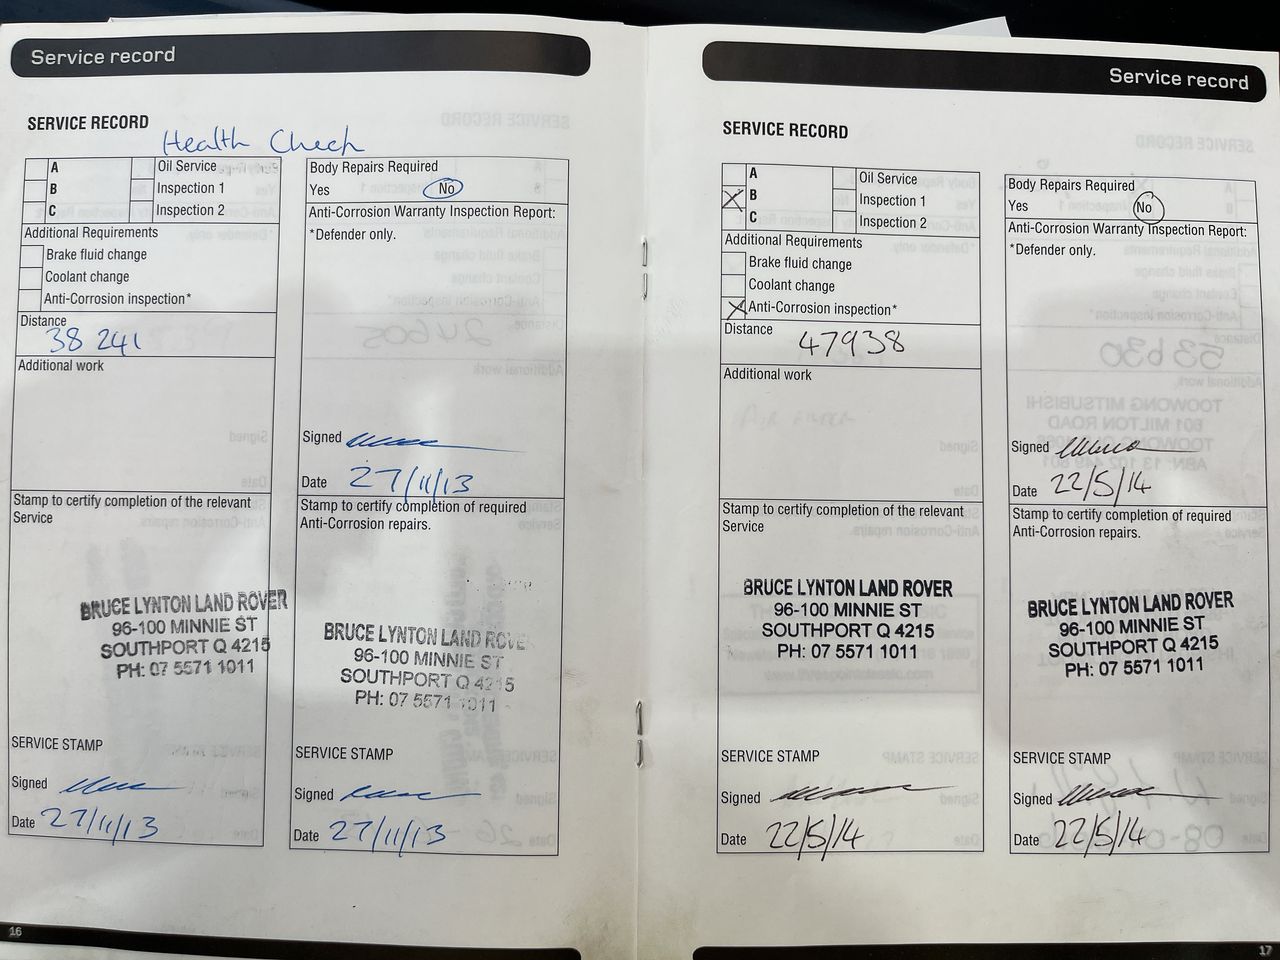 Service record
SERVICE RECORD
Health Check
A
Oil Service
B
Inspection 1
C
Inspection 2
Additional Requirements
Brake fluid change
Coolant change
Anti-Corrosion inspection*
Distance
38 241
Additional work
Stamp to certify completion of the relevant
Service
BRUCE LYNTON LAND ROVER
96-100 MINNIE ST
SOUTHPORT Q 4215
PH: 07 5571 1011
SERVICE STAMP
Signed
Date 27/11/13
Body Repairs Required
Yes No
Anti-Corrosion Warranty Inspection Report:
*Defender only.
Signed
Date 27/11/13
Stamp to certify completion of required
Anti-Corrosion repairs.
BRUCE LYNTON LAND ROVER
96-100 MINNIE ST
SOUTHPORT Q 4215
PH: 07 5571 1011
SERVICE STAMP
Signed
Date 27/11/13
16
Service record
SERVICE RECORD
A
Oil Service
B
Inspection 1
C
Inspection 2
Additional Requirements
Brake fluid change
Coolant change
Anti-Corrosion inspection*
Distance
47938
Additional work
Stamp to certify completion of the relevant
Service
BRUCE LYNTON LAND ROVER
96-100 MINNIE ST
SOUTHPORT Q 4215
PH: 07 5571 1011
SERVICE STAMP
Signed
Date 22/5/14
Body Repairs Required
Yes No
Anti-Corrosion Warranty Inspection Report:
*Defender only.
Signed
Date 22/5/14
Stamp to certify completion of required
Anti-Corrosion repairs.
BRUCE LYNTON LAND ROVER
96-100 MINNIE ST
SOUTHPORT Q 4215
PH: 07 5571 1011
SERVICE STAMP
Signed
Date 22/5/14
17